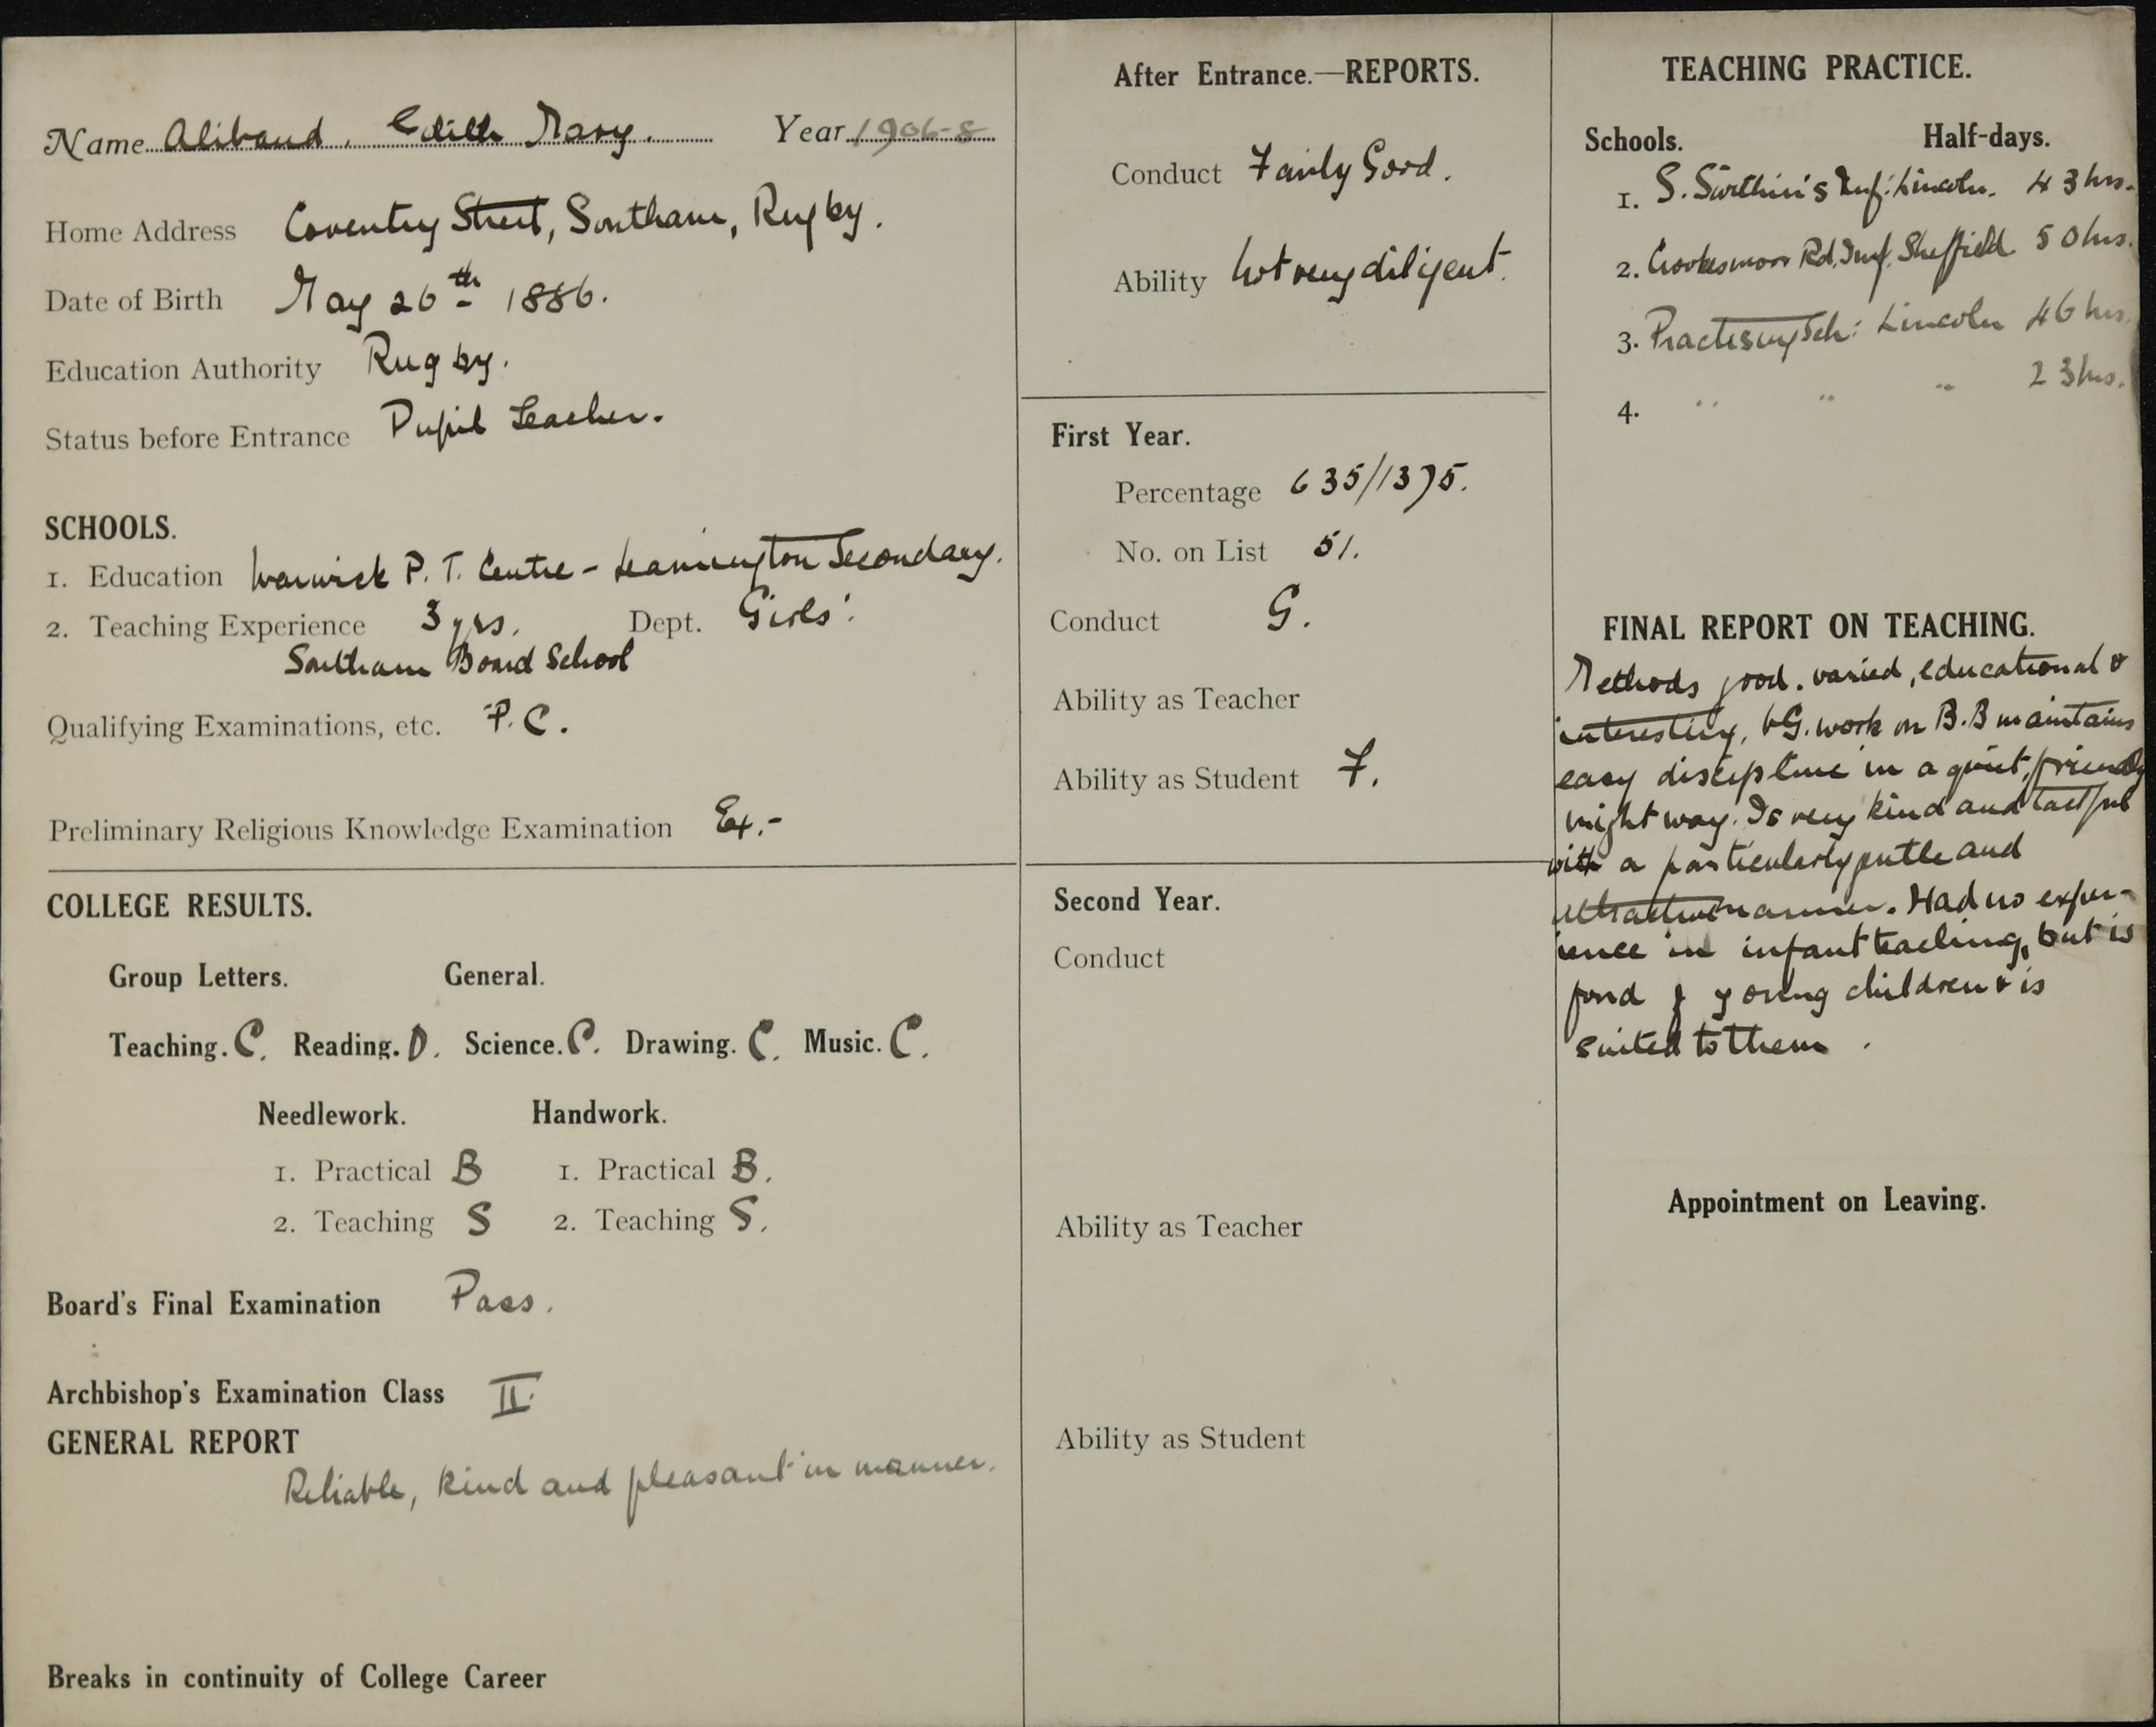 Name Alibaud, Edith Mary. Year 1906-8
Home Address Coventry Street, Southam, Rugby.
Date of Birth May 26th 1886.
Education Authority Rugby.
Status before Entrance Pupil Teacher.
SCHOOLS.
1. Education Warwick P. T. Centre - Leamington Secondary.
2. Teaching Experience 3 yrs. Dept. Girls'.
Southam Board School
Qualifying Examinations, etc. P.C.
Preliminary Religious Knowledge Examination Ex.-
COLLEGE RESULTS.
Group Letters. General.
Teaching. C. Reading. D. Science. C. Drawing. C. Music. C.
Needlework. Handwork.
1. Practical B 1. Practical B.
2. Teaching S 2. Teaching S.
Board's Final Examination Pass.
Archbishop's Examination Class II.
GENERAL REPORT
Reliable, kind and pleasant in manner.
Breaks in continuity of College Career
After Entrance.—REPORTS.
Conduct Fairly Good.
Ability Not very diligent.
First Year.
Percentage 635/1375.
No. on List 51.
Conduct G.
Ability as Teacher
Ability as Student F.
Second Year.
Conduct
Ability as Teacher
Ability as Student
TEACHING PRACTICE.
Schools. Half-days.
1. S. Swithin's Inf: Lincoln. 43 hrs.
2. Crookesmoor Rd. Inf. Sheffield 50 hrs.
3. Practising Sch: Lincoln 46 hrs.
4. " " " 23 hrs.
FINAL REPORT ON TEACHING.
Methods good. varied, educational &
interesting, VG. work on B.B maintains
easy discipline in a quiet, friendly
right way. Is very kind and tactful
with a particularly gentle and
attractive manner. Had no exper-
ience in infant teaching, but is
fond of young children & is
suited to them.
Appointment on Leaving.